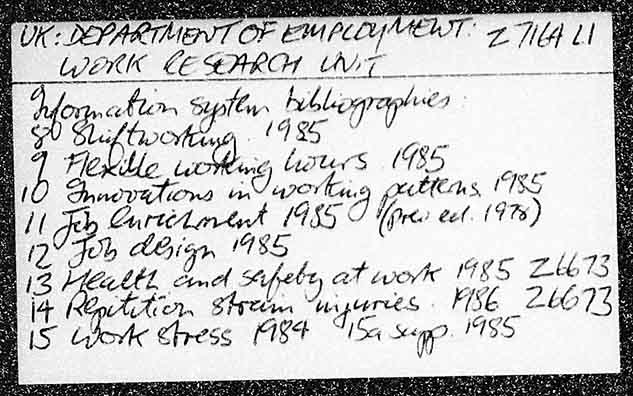 UK: DEPARTMENT OF EMPLOYMENT: Z 7164 L1
WORK RESEARCH UNIT
Information system bibliographies:
8 Shiftworking. 1985
9 Flexible working hours. 1985
10 Innovations in working patterns. 1985
11 Job enrichment 1985 (prev ed. 1978)
12 Job design 1985
13 Health and safety at work 1985 Z6673
14 Repitition strain injuries. 1986 Z6673
15 Work stress 1984 15a supp. 1985